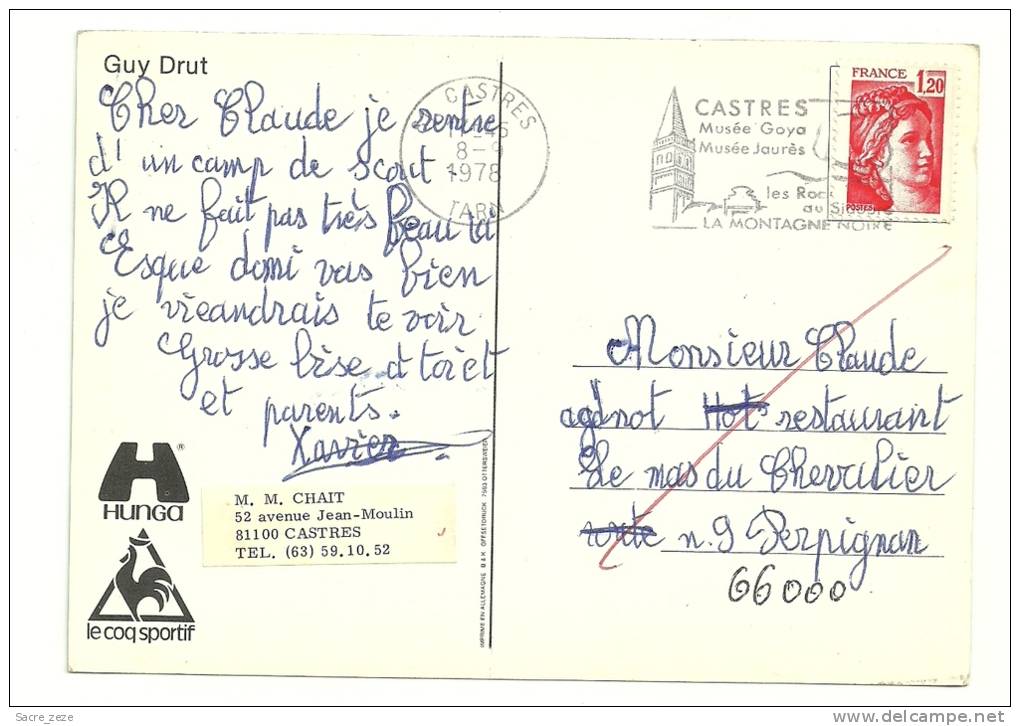 Guy Drut
Cher Claude je rentre
d'un camp de scout.
Il ne fait pas très beau la
Esque domi vas bien
je vieandrais te voir
Grosse bise a toi et
et parents.
Xavier
HUNGA
®
le coq sportif
M. M. CHAIT
52 avenue Jean-Moulin
81100 CASTRES
TEL. (63) 59.10.52
IMPRIMÉ EN ALLEMAGNE B & K OFFSETDRUCK 7583 OTTERSWEIER
CASTRES
8-9
1978
TARN
CASTRES
Musée Goya
Musée Jaurès
les Roc
au Sidobre
LA MONTAGNE NOIRE
FRANCE 1,20
POSTES
Monsieur Claude
restaurant
Le mas du Chevalier
route n.9 Perpignan
66000
Sacre_zeze
www.delcampe.net